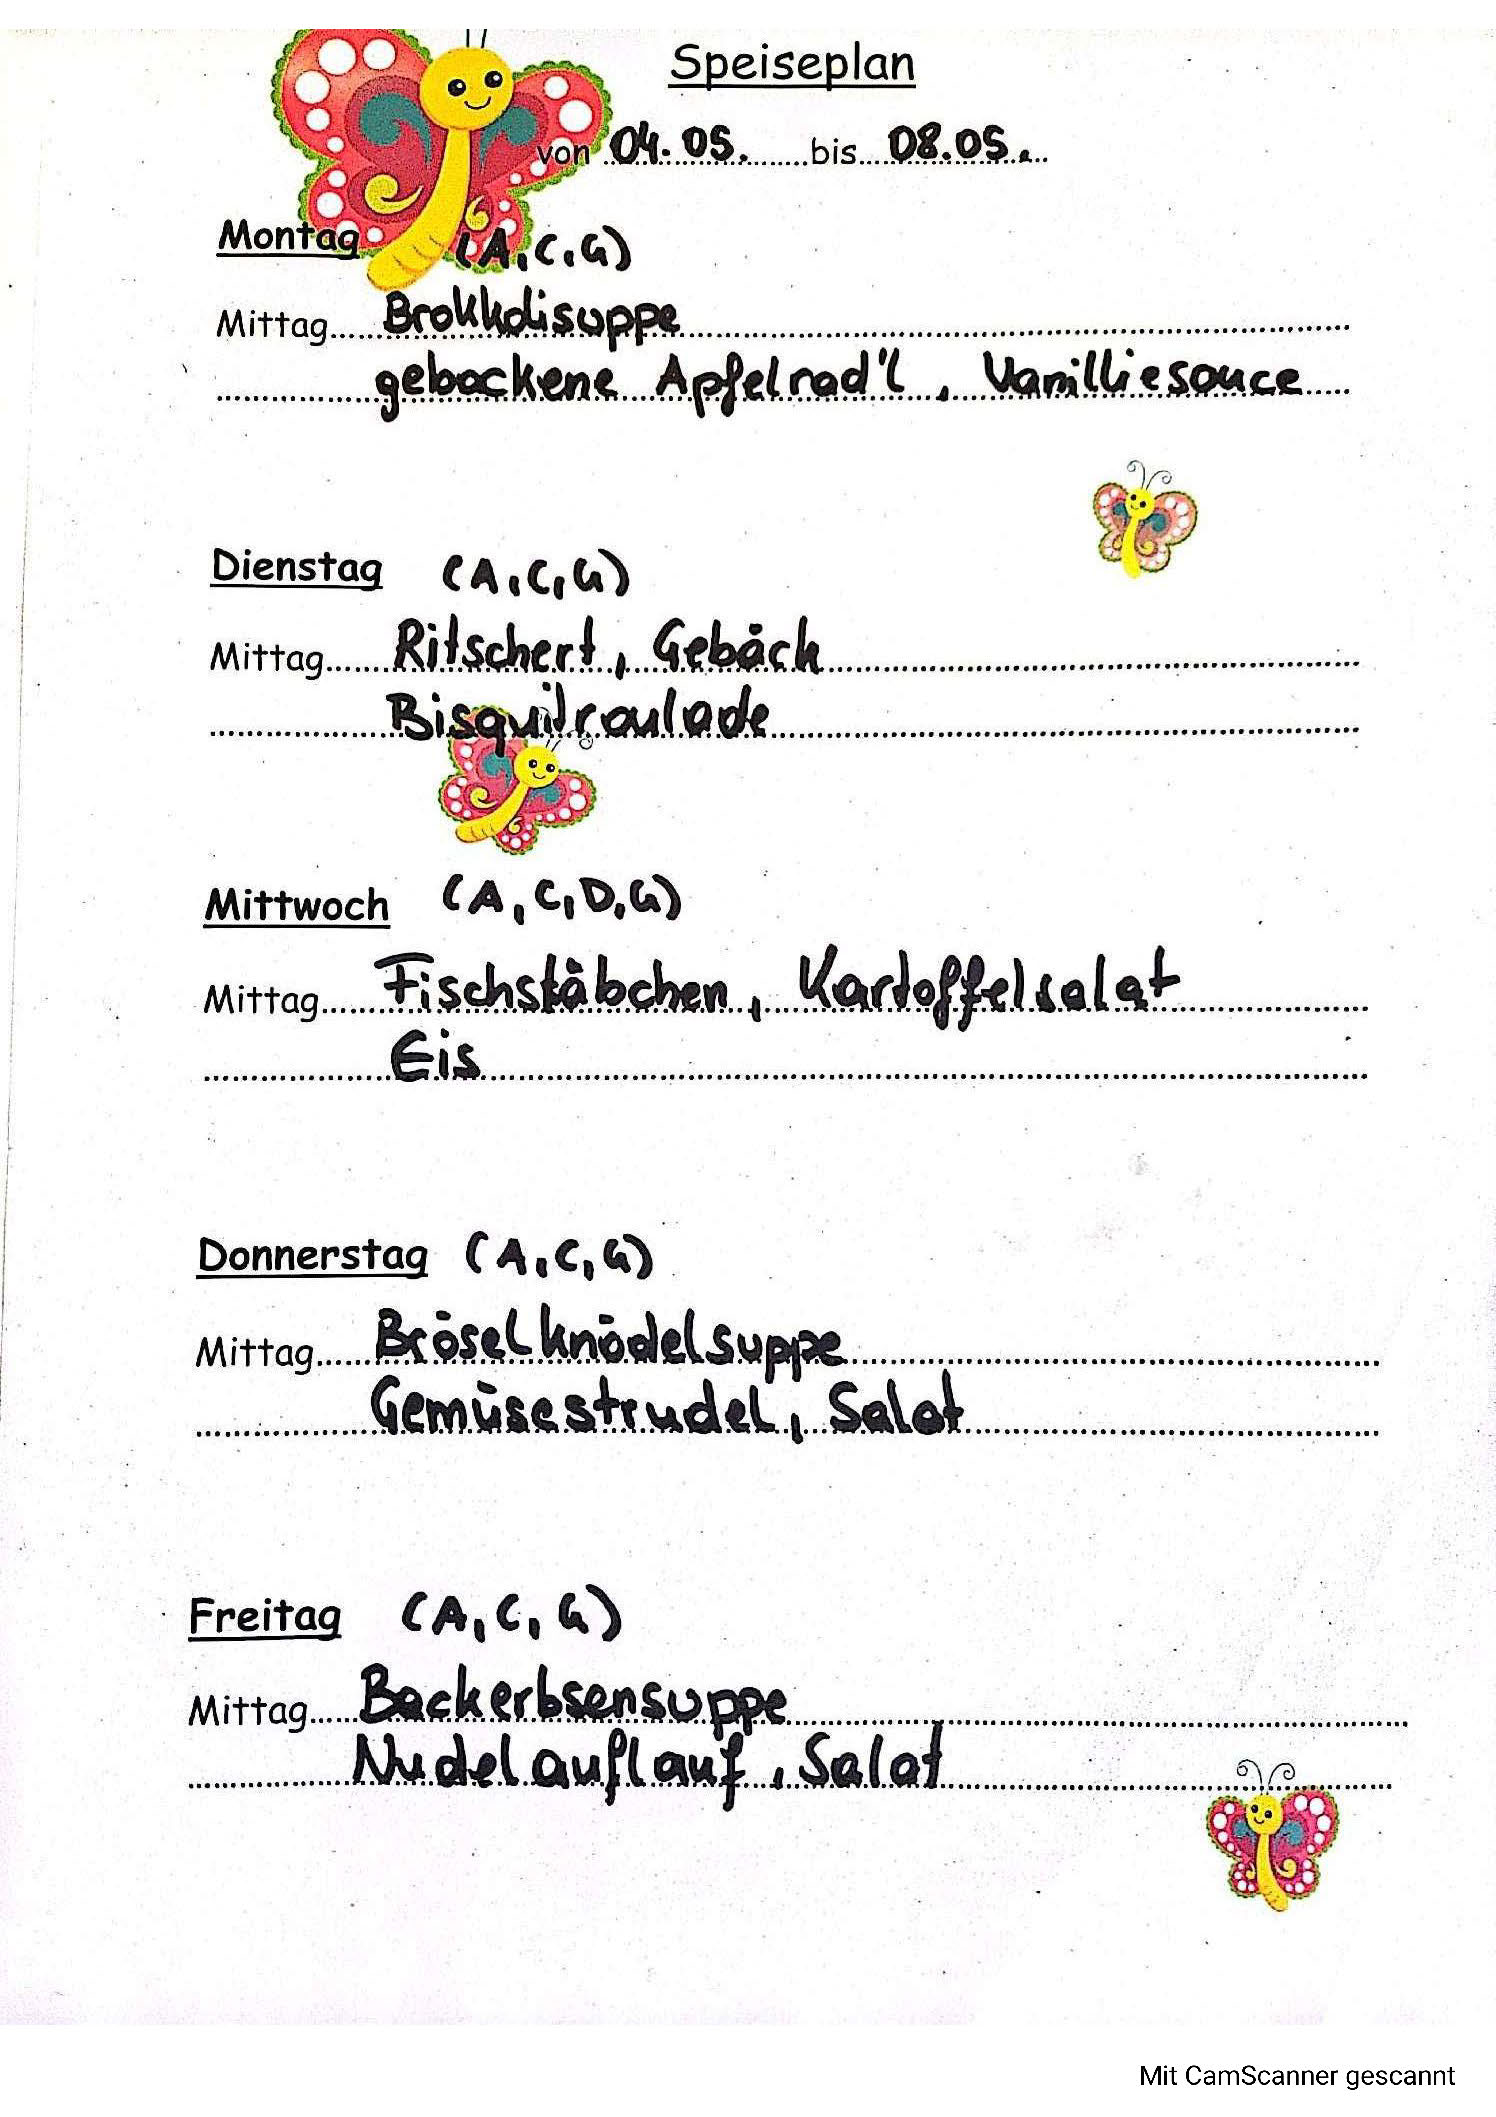 Speiseplan
von 04.05. bis 08.05.
Montag (A,C,G)
Mittag Brokkolisuppe
gebackene Apfelrad'l, Vanilliesauce
Dienstag (A,C,G)
Mittag Ritschert, Gebäck
Bisquitroulade
Mittwoch (A,C,D,G)
Mittag Fischstäbchen, Kartoffelsalat
Eis
Donnerstag (A,C,G)
Mittag Bröselknödelsuppe
Gemüsestrudel, Salat
Freitag (A,C,G)
Mittag Backerbsensuppe
Nudelauflauf, Salat
Mit CamScanner gescannt